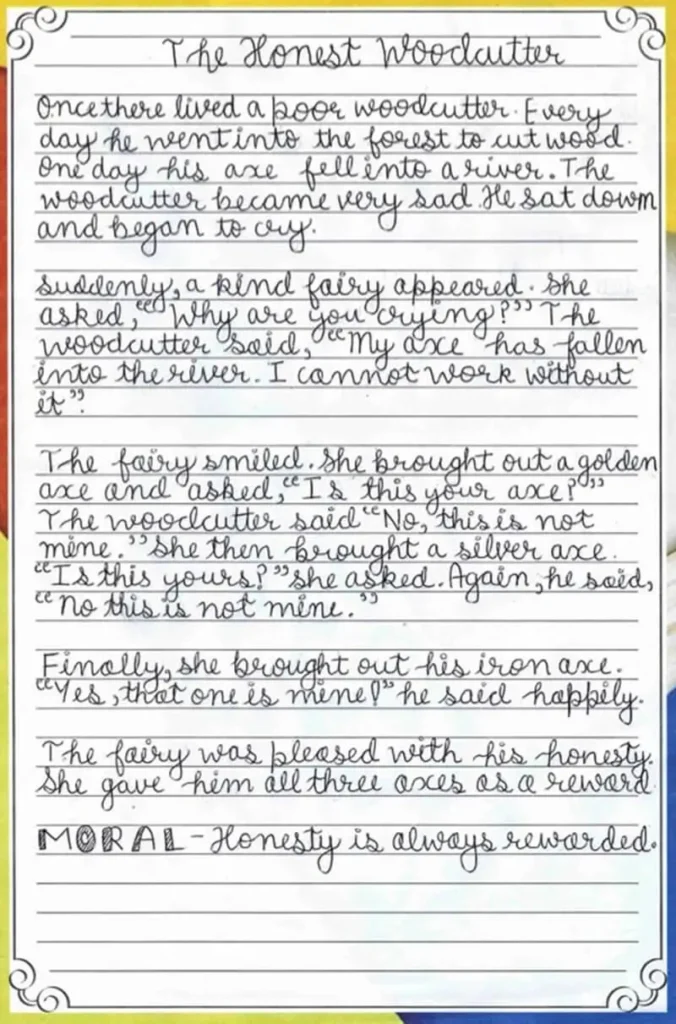 The Honest Woodcutter
Once there lived a poor woodcutter. Every
day he went into the forest to cut wood.
One day his axe fell into a river. The
woodcutter became very sad. He sat down
and began to cry.
Suddenly, a kind fairy appeared. She
asked, "Why are you crying?" The
woodcutter said, "My axe has fallen
into the river. I cannot work without
it".
The fairy smiled. She brought out a golden
axe and asked, "Is this your axe?"
The woodcutter said "No, this is not
mine." She then brought a silver axe.
"Is this yours?" she asked. Again, he said,
"No this is not mine."
Finally, she brought out his iron axe.
"Yes, that one is mine!" he said happily.
The fairy was pleased with his honesty.
She gave him all three axes as a reward.
MORAL - Honesty is always rewarded.